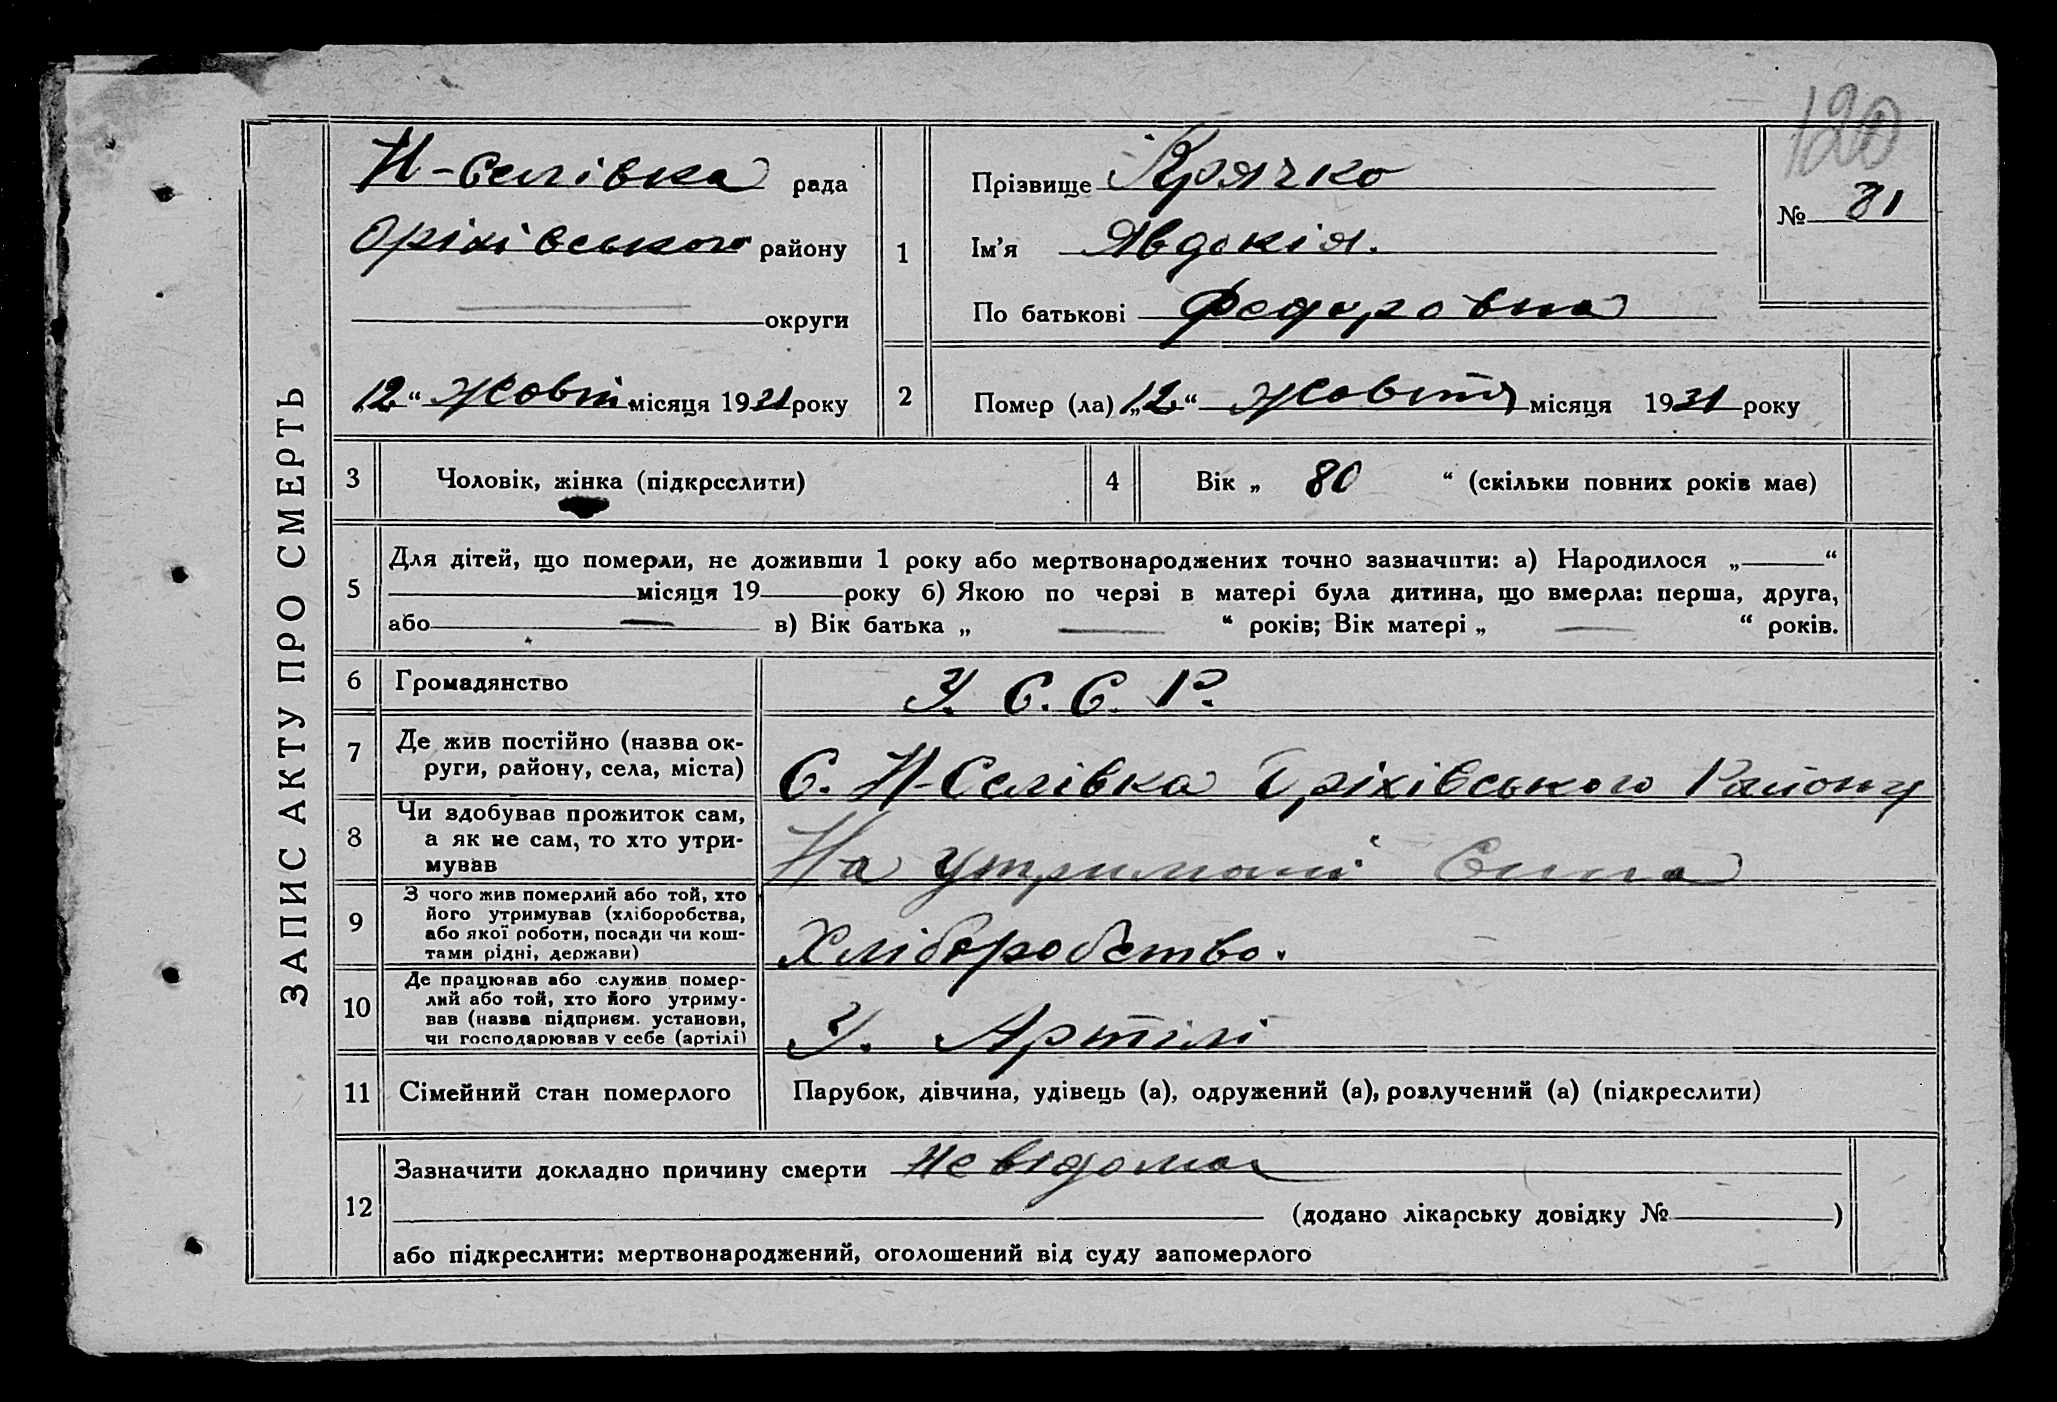 120
ЗАПИС АКТУ ПРО СМЕРТЬ
Н-Селівка рада
Оріхівського району
округи
„12“ Жовт. місяця 1931 року
1
Прізвище Крячко
Ім'я Явдокія.
По батькові Федоровна
№ 31
2
Помер (ла) „12“ Жовтня місяця 1931 року
3
Чоловік, жінка (підкреслити)
4
Вік „ 80 “ (скільки повних років має)
5
Для дітей, що померли, не доживши 1 року або мертвонароджених точно зазначити: а) Народилося „ — “
місяця 19 року б) Якою по черзі в матері була дитина, що вмерла: перша, друга,
або — в) Вік батька „ — “ років; Вік матері „ — “ років.
6
Громадянство
У. С. С. Р.
7
Де жив постійно (назва ок-
руги, району, села, міста)
С. Н-Селівка Оріхівського Району
8
Чи здобував прожиток сам,
а як не сам, то хто утри-
мував
На утримані Сина
9
З чого жив померлий або той, хто
його утримував (хліборобства,
або якої роботи, посади чи кош-
тами рідні, держави)
Хліборобство.
10
Де працював або служив помер-
лий або той, хто його утриму-
вав (назва підприєм. установи,
чи господарював у себе (артілі)
У. Артілі
11
Сімейний стан померлого
Парубок, дівчина, удівець (а), одружений (а), розлучений (а) (підкреслити)
12
Зазначити докладно причину смерти Невідома
(додано лікарську довідку № )
або підкреслити: мертвонароджений, оголошений від суду запомерлого